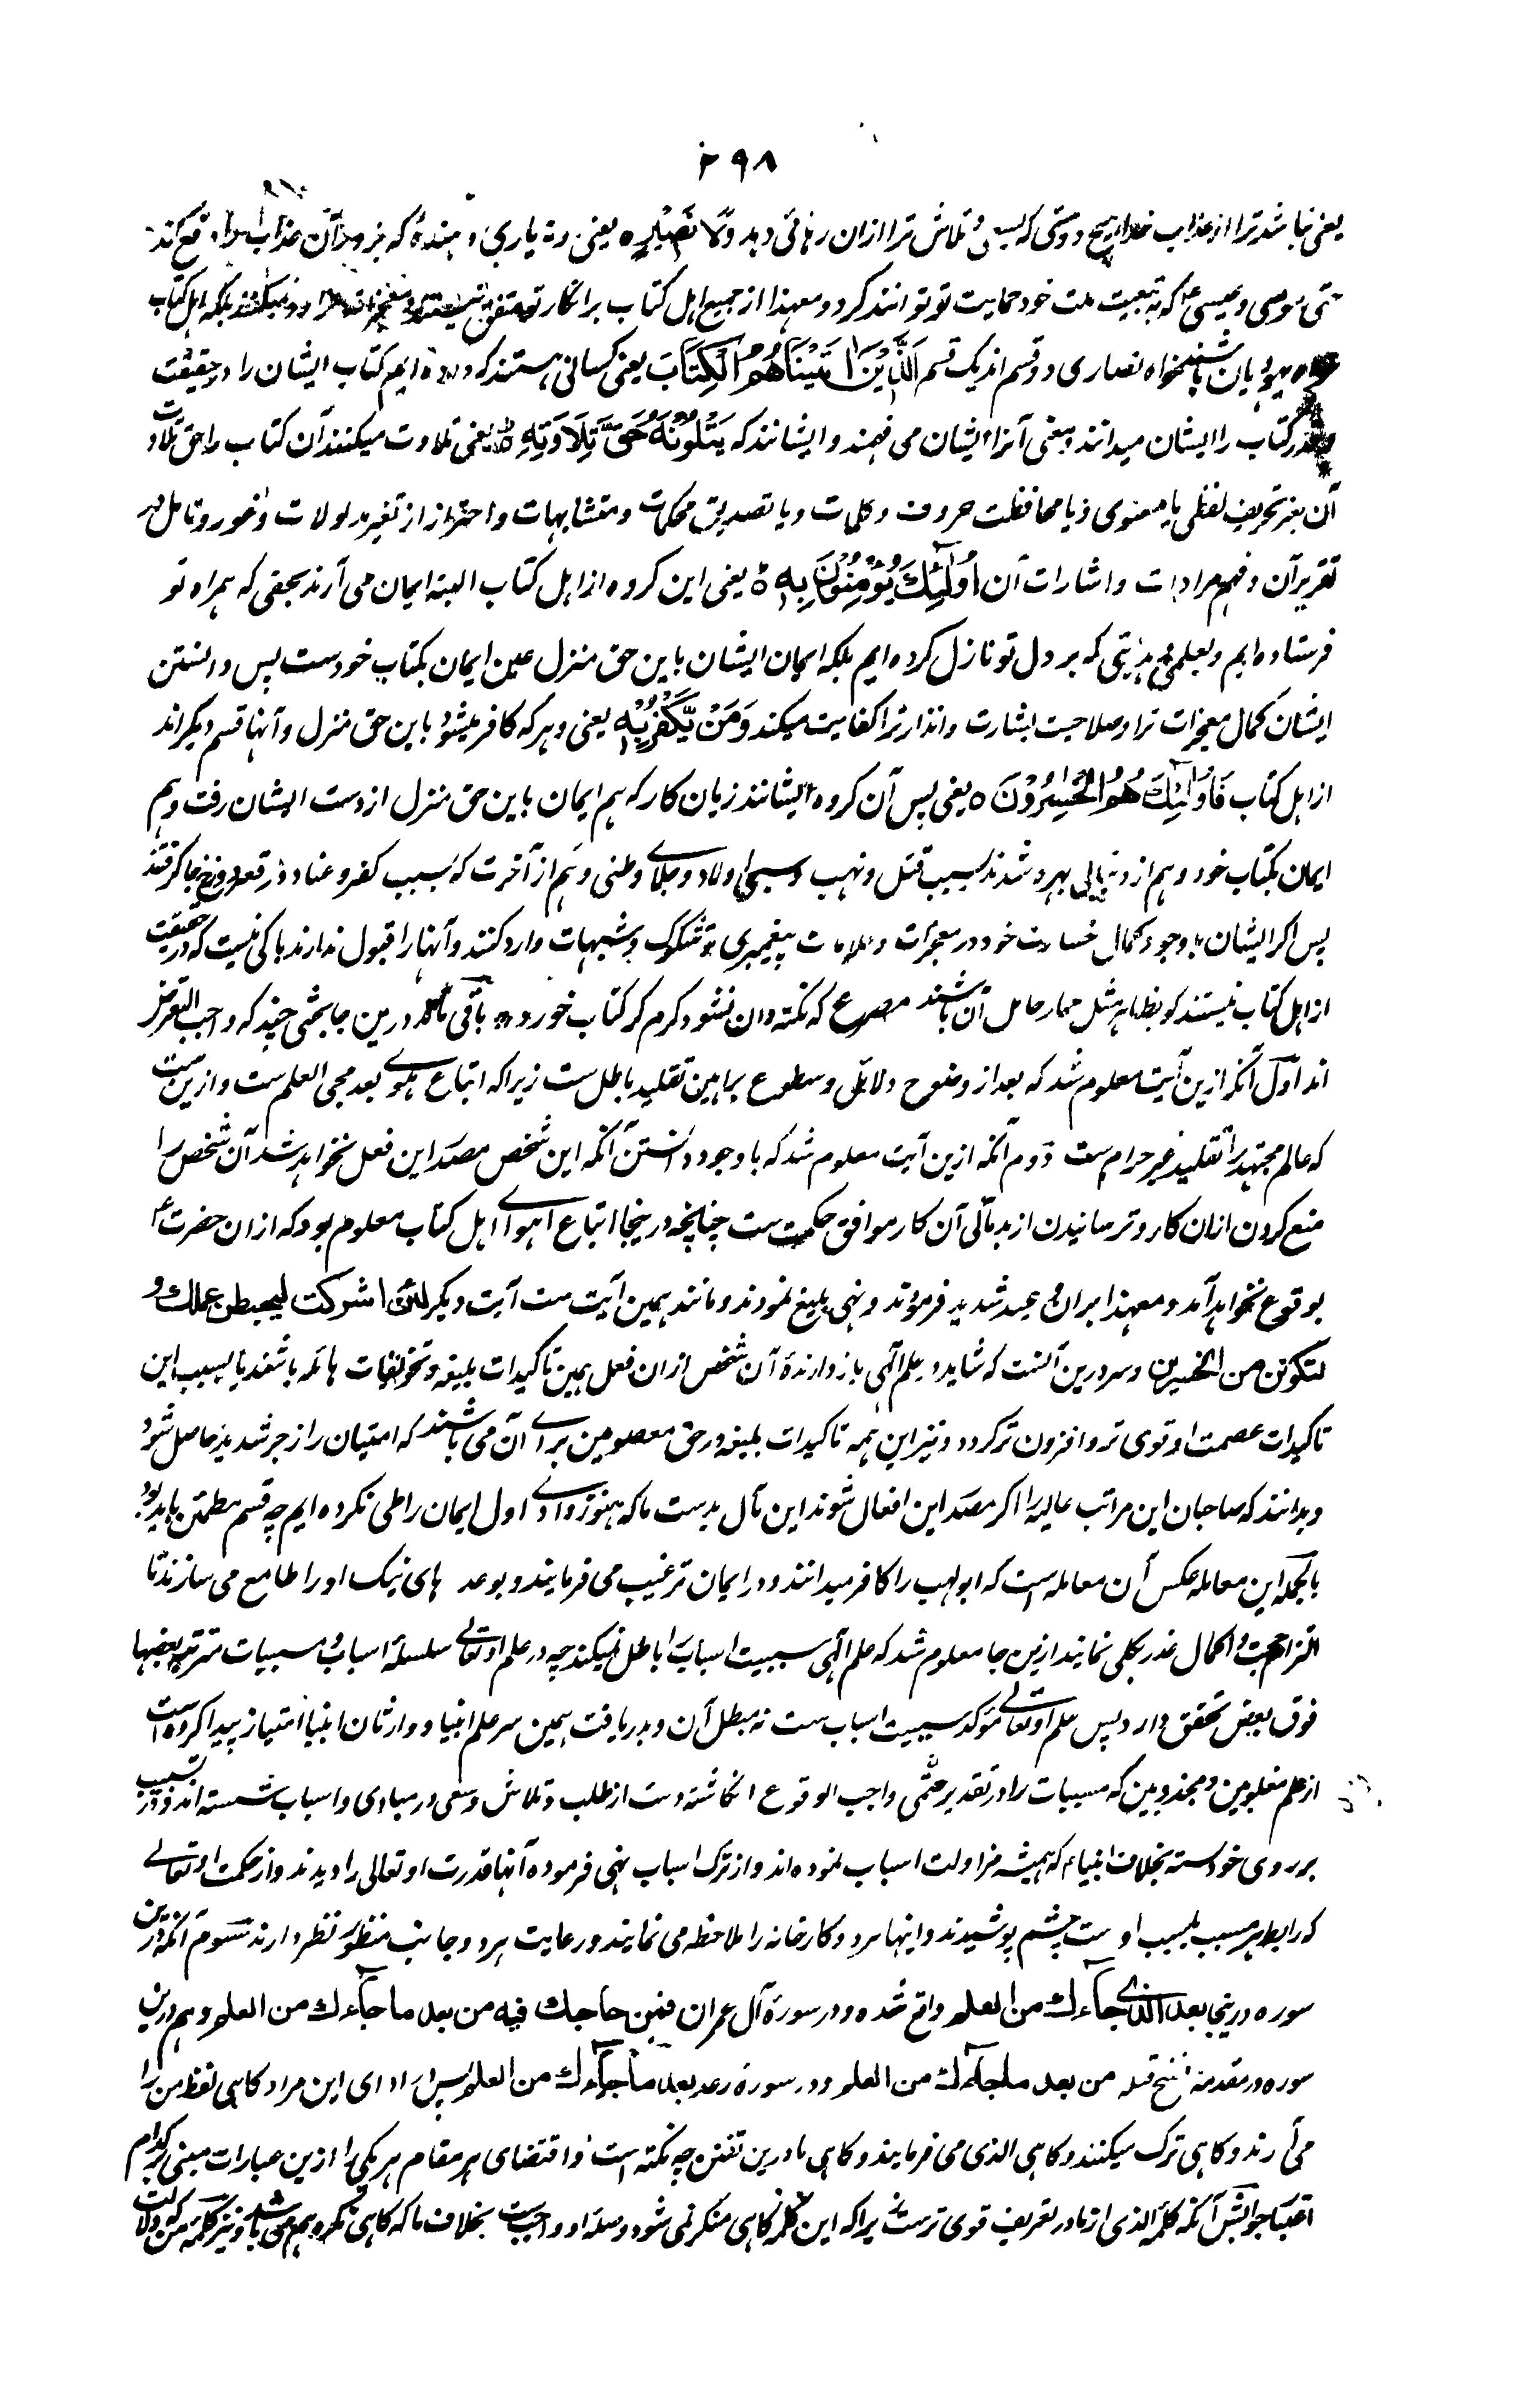 ۲۹۸
یعنی نباشد ترا از عذاب خدا هیچ دوستی که بسعی و تلاش ترا ازان رهائی دهد وَّلَا نَصِيْرٍ ه یعنی و نه یاری دهنده که بزور آن عذاب را دفع کند
حتی موسی و عیسی که به تبعیت ملت خود حمایت تو توانند کرد و معهذا از جمیع اهل کتاب بر انکار تو متفق نیستند بلکه اهل کتاب
خواه یهودیان باشند خواه نصاری دو قسم اند یک قسم اَلَّذِيْنَ اٰتَيْنٰهُمُ الْكِتٰبَ یعنی کسانی هستند که داده ایم کتاب ایشان را در حقیقت
قدر کتاب را ایشان میدانند و معنی آنرا ایشان می فهمند و ایشانند که يَتْلُوْنَهٗ حَقَّ تِلَاوَتِهٖ ط یعنی تلاوت میکنند آن کتاب را حق تلاوت
آن بغیر تحریف لفظی یا معنوی و با محافظت حروف و کلمات و با تصدیق محکمات و متشابهات و احتراز از تغیر مدلولات و غور و تامل در
تقریر آن و فهم مرادات و اشارات آن اُولٰٓئِكَ يُؤْمِنُوْنَ بِهٖ ط یعنی این گروه از اهل کتاب البته ایمان می آرند بحقی که همراه تو
فرستاده ایم و بعلمی و هدایتی که بر دل تو نازل کرده ایم بلکه ایمان ایشان باین حق منزل عین ایمان بکتاب خودست پس دانستن
ایشان کمال معجزات ترا و صلاحیت بشارت و انذار ترا کفایت میکند وَمَنْ يَّكْفُرْ بِهٖ یعنی و هر که کافر میشود باین حق منزل و آنها قسم دیگر اند
از اهل کتاب فَاُولٰٓئِكَ هُمُ الْخٰسِرُوْنَ ه یعنی پس آن گروه ایشانند زیان کار که هم ایمان باین حق منزل از دست ایشان رفت و هم
ایمان بکتاب خود و هم از دنیا بی بهره شدند بسبب قتل و نهب و سبی اولاد و جلای وطنی و هم از آخرت که بسبب کفر و عناد در قعر دوزخ جا گرفتند
پس اگر ایشان با وجود کمال خسارت خود در معجزات و علامات پیغمبری تو شکوک و شبهات وارد کنند و آنها را قبول ندارند باکی نیست که در حقیقت
از اهل کتاب نیستند گو بظاهر مثل حمار حامل آن باشند مصرع که نکته دان نشود کرم گر کتاب خورد باقی ماند درین جا بحثی چند که واجب التعرض
اند اول آنکه ازین آیت معلوم شد که بعد از وضوح دلائل و سطوع براهین تقلید باطل ست زیرا که اتباع هوی بعد مجی العلم ست و ازین ست
که عالم مجتهد را تقلید غیر حرام ست دوم آنکه ازین آیت معلوم شد که با وجود دانستن آنکه این شخص مصدر این فعل نخواهد شد آن شخص را
منع کردن ازان کار و ترسانیدن از بد مآلی آن کار موافق حکمت ست چنانچه درینجا اتباع اهوای اهل کتاب معلوم بود که ازان حضرت ؑ
بوقوع نخواهد آمد و معهذا بران وعید شدید فرمودند و نهی بلیغ نمودند و مانند همین آیت ست آیت دیگر لئن اشرکت لیحبطن عملک و
لتکونن من الخسرین و سر درین آنست که شاید در علم الٰهی باز دارنده آن شخص ازان فعل همین تاکیدات بلیغه و تخویفات هائله باشند یا بسبب این
تاکیدات عصمت او قوی تر و افزون تر گردد و نیز این همه تاکیدات بلیغه در حق معصومین برای آن می باشند که امتیان را زجر شدید حاصل شود
و بدانند که صاحبان این مراتب عالیه را اگر مصدر این افعال شوند این مآل بدست ما که هنوز وادی اول ایمان را طی نکرده ایم چه قسم مطمئن باید بود
بالجمله این معامله عکس آن معامله است که ابولهب را کافر میدانند و در ایمان ترغیب می فرمایند و بوعد های نیک او را طامع می سازند تا
الزام حجت و اکمال عذر بکلی نمایند ازین جا معلوم شد که علم الٰهی سببیت اسباب را باطل نمیکند چه در علم او تعالی سلسله اسباب و مسببات مترتبه بعضها
فوق بعض تحقق دارد پس علم او تعالی مؤکد سببیت اسباب ست نه مبطل آن و بدریافت همین سر علم انبیا و وارثان انبیا امتیاز پیدا کرده است
از علم مغلوبین و مجذوبین که مسببات را در تقدیر حتمی واجب الوقوع انگاشته دست از طلب و تلاش و سعی در مبادی و اسباب شسته اند و در سبب
بر روی خود بسته بخلاف انبیاء که همیشه مزاولت اسباب نموده اند و از ترک اسباب نهی فرموده آنها قدرت او تعالی را دیدند و از حکمت او تعالی
که رابط هر مسبب بسبب اوست چشم پوشیدند و اینها هر دو کارخانه را ملاحظه می نمایند و رعایت هر دو جانب منظور نظر دارند سوم آنکه درین
سوره درینجا بعد الذی جاءک من العلم واقع شده و در سوره آل عمران فمن حاجک فیه من بعد ما جاءک من العلم و هم درین
سوره در مقدمه نسخ قبله من بعد ما جاءک من العلم و در سوره رعد بعد ما جاءک من العلم پس برای ادای این مراد گاهی لفظ من را
می آرند و گاهی ترک میکنند و گاهی الذی می فرمایند و گاهی ما درین تفنن چه نکته است و اقتضای هر مقام هر یکی را ازین عبارات مبنی بر کدام
اعتبار جوابش آنکه کلمه الذی از ما در تعریف قوی ترست زیرا که این کلمه گاهی منکر نمی شود و صله او واجب ست بخلاف ما که گاهی نکره هم می باشد و نیز کلمه من که دلالت